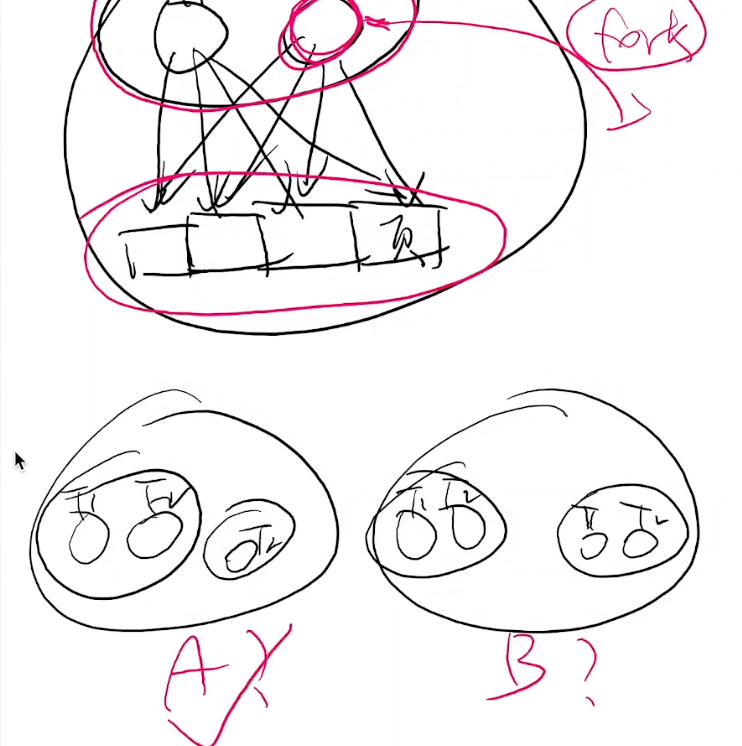 fork
资
T1 T2 T2
T1 T2 T1 T2
A?
B?